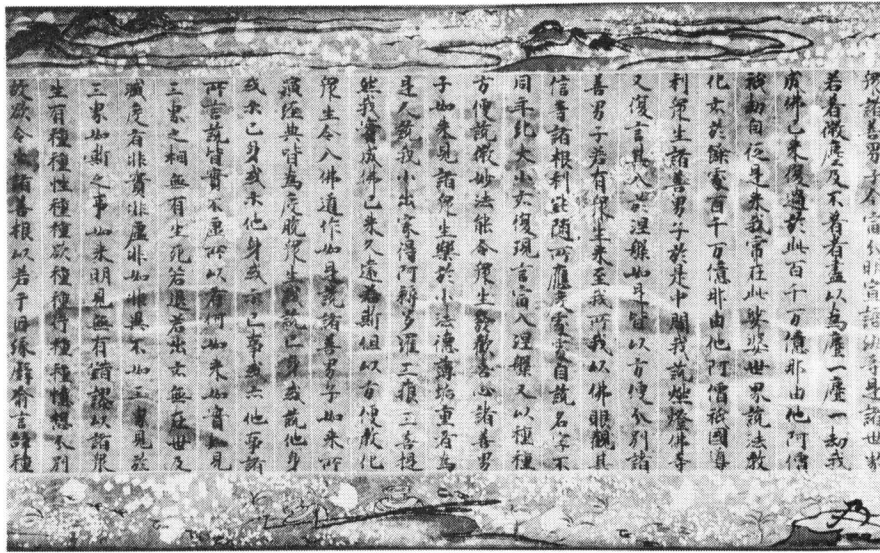 衆諸善男子今當分明宣語汝等是諸世界
若著微塵及不著者盡以為塵一塵一劫我
成佛已来復過於此百千万億那由他阿僧
祇劫自従是来我常在此娑婆世界説法教
化亦於餘處百千万億那由他阿僧祇國導
利衆生諸善男子於是中間我説燃燈佛等
又復言其入於涅槃如是皆以方便分別諸
善男子若有衆生来至我所我以佛眼觀其
信等諸根利鈍隨所應度處處自説名字不
同年紀大小亦復現言當入涅槃又以種種
方便説微妙法能令衆生發歡喜心諸善男
子如来見諸衆生樂於小法德薄垢重者為
是人説我小出家得阿耨多羅三藐三菩提
然我實成佛已来久遠若斯但以方便教化
衆生令入佛道作如是説諸善男子如来所
演經典皆為度脱衆生或説己身或説他身
或示己身或示他身或示己事或示他事諸
所言説皆實不虛所以者何如来如實知見
三界之相無有生死若退若出亦無在世及
滅度者非實非虛非如非異不如三界見於
三界如斯之事如来明見無有錯謬以諸衆
生有種種性種種欲種種行種種憶想分別
故欲令生諸善根以若干因縁譬喻言辭種種